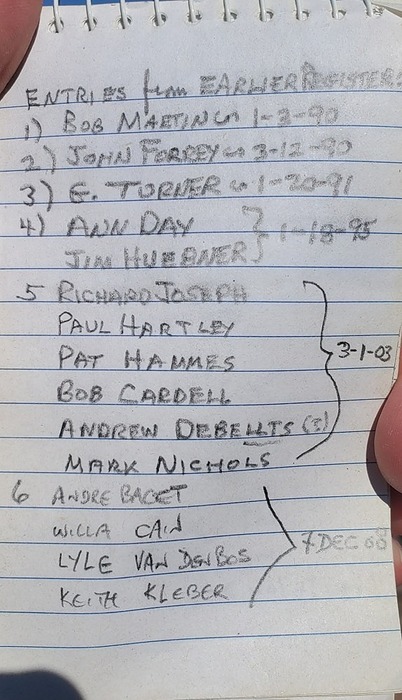 ENTRIES from EARLIER REGISTERS
1) BOB MARTIN 1-3-90
2) JOHN FORREY 3-12-90
3) E. TURNER 1-20-91
4) ANN DAY } 1-18-95
JIM HUEBNER
5 RICHARD JOSEPH
PAUL HARTLEY
PAT HAMMES 3-1-03
BOB CARDELL
ANDREW DEBELLTS (?)
MARK NICHOLS
6 ANDRE BACET
WILLA CAIN
LYLE VAN DEN BOS 7 DEC
KEITH KLEBER